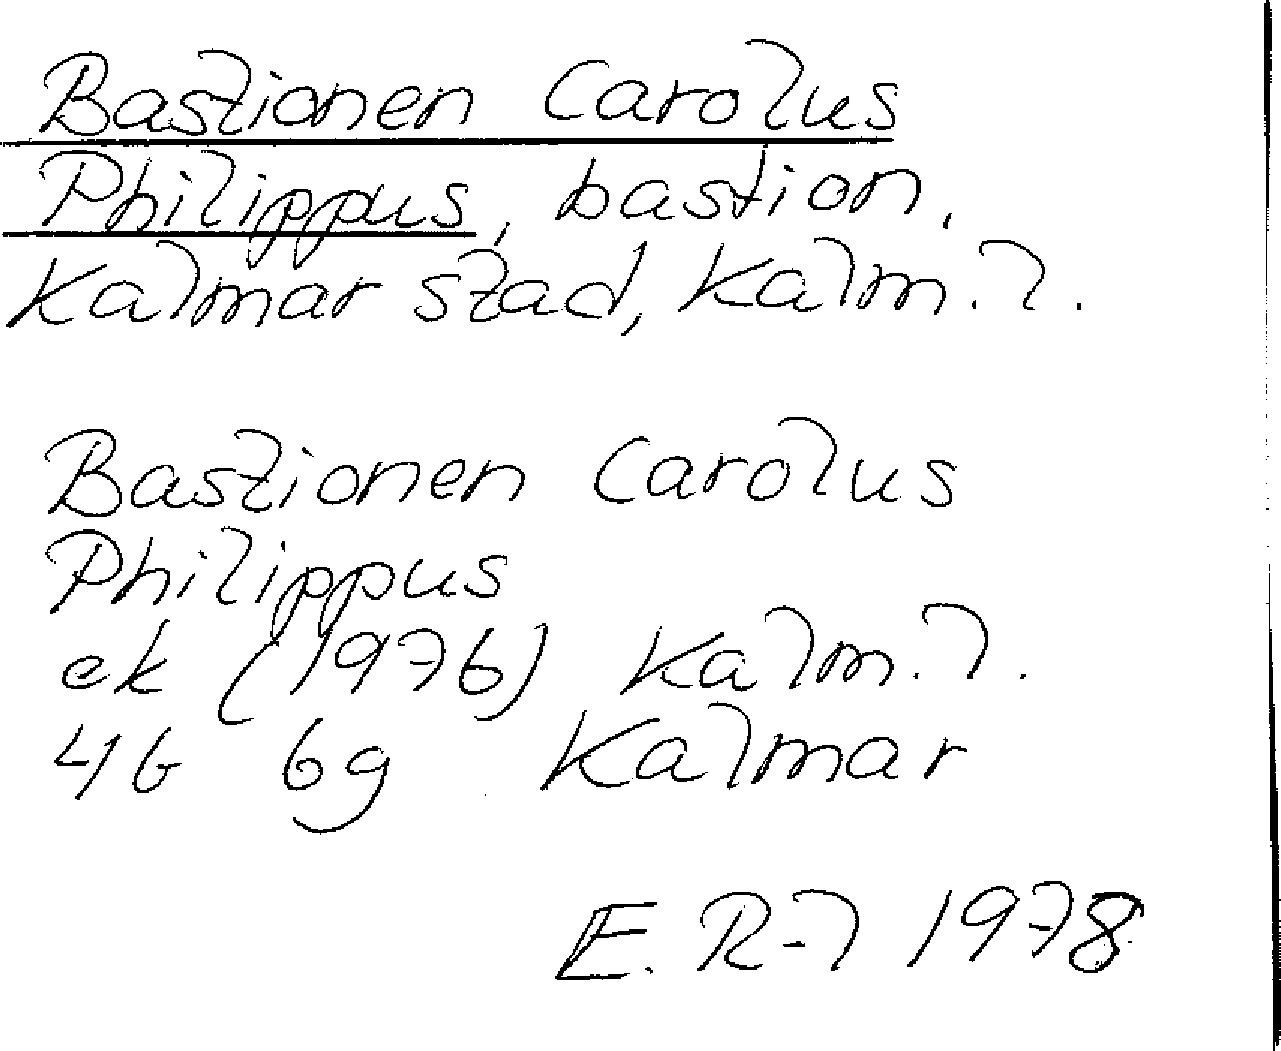 Bastionen Carolus
Philippus, bastion,
Kalmar stad, Kalm. l.
Bastionen Carolus
Philippus
ek (1976) Kalm. l.
4G 6g Kalmar
E. R-l 1978